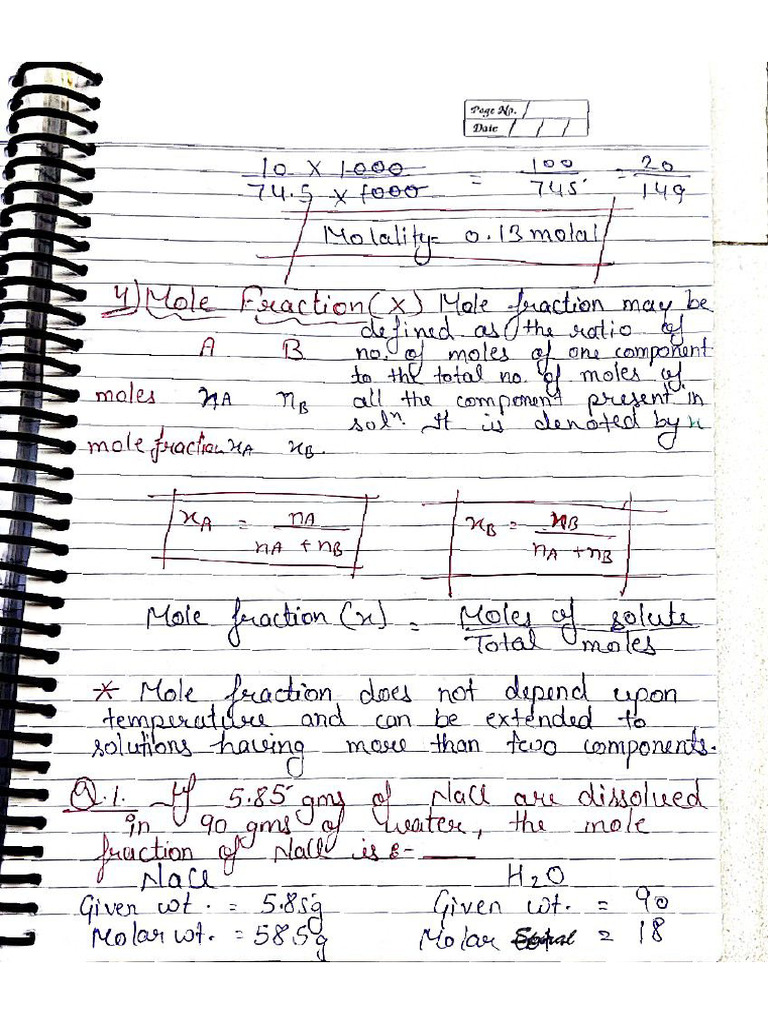 Page No.
Date
10 X 1000 / 74.5 x 1000 = 100 / 745 = 20 / 149
Molality = 0.13 molal
4) Mole Fraction (X) Mole fraction may be
defined as the ratio of
A B no. of moles of one component
to the total no. of moles of
moles nA nB all the component present in
soln. It is denoted by x
mole fraction xA xB.
xA = nA / nA + nB xB = nB / nA + nB
Mole fraction (x) = Moles of solute / Total moles
* Mole fraction does not depend upon
temperature and can be extended to
solutions having more than two components.
Q.1. If 5.85 gms of NaCl are dissolved
in 90 gms of water, the mole
fraction of NaCl is :- ___
NaCl H2O
Given wt. = 5.85g Given wt. = 90
Molar wt. = 58.5g Molar = 18